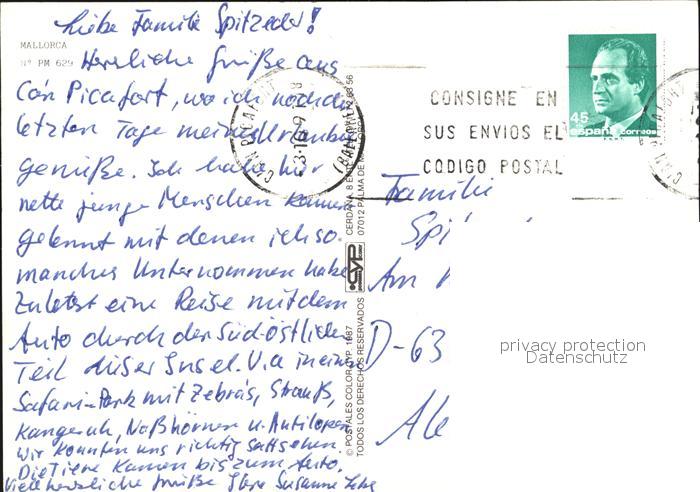 Liebe Familie Spitzeder!
MALLORCA
Nº PM 629
Herzliche Grüße aus
Can Picafort, wo ich noch die
letzten Tage meines Urlaubes
genieße. Ich habe hier
nette junge Menschen kennen
gelernt mit denen ich so
manches Unternommen habe
Zuletzt eine Reise mit dem
Auto durch den Süd-östlichen
Teil dieser Insel. U.a in einen
Safari-Park mit Zebras, Strauß,
Känguruh, Naßhörner u. Antilopen
Wir konnten uns richtig satt sehen.
Die Tiere kamen bis zum Auto.
Viele herzliche Grüße Ihre Susanne
CAN PICAFORT
(BALEARES)
CONSIGNE EN
SUS ENVIOS EL
CODIGO POSTAL
45
españa correos
CAN PICAFORT
© POSTALES COLOR CYP, 1987
TODOS LOS DERECHOS RESERVADOS
CYP
CERDAÑA, 8
07012 PALMA DE MALLORCA
Familie
Spi
Am
D-63
Ale
privacy protection
Datenschutz